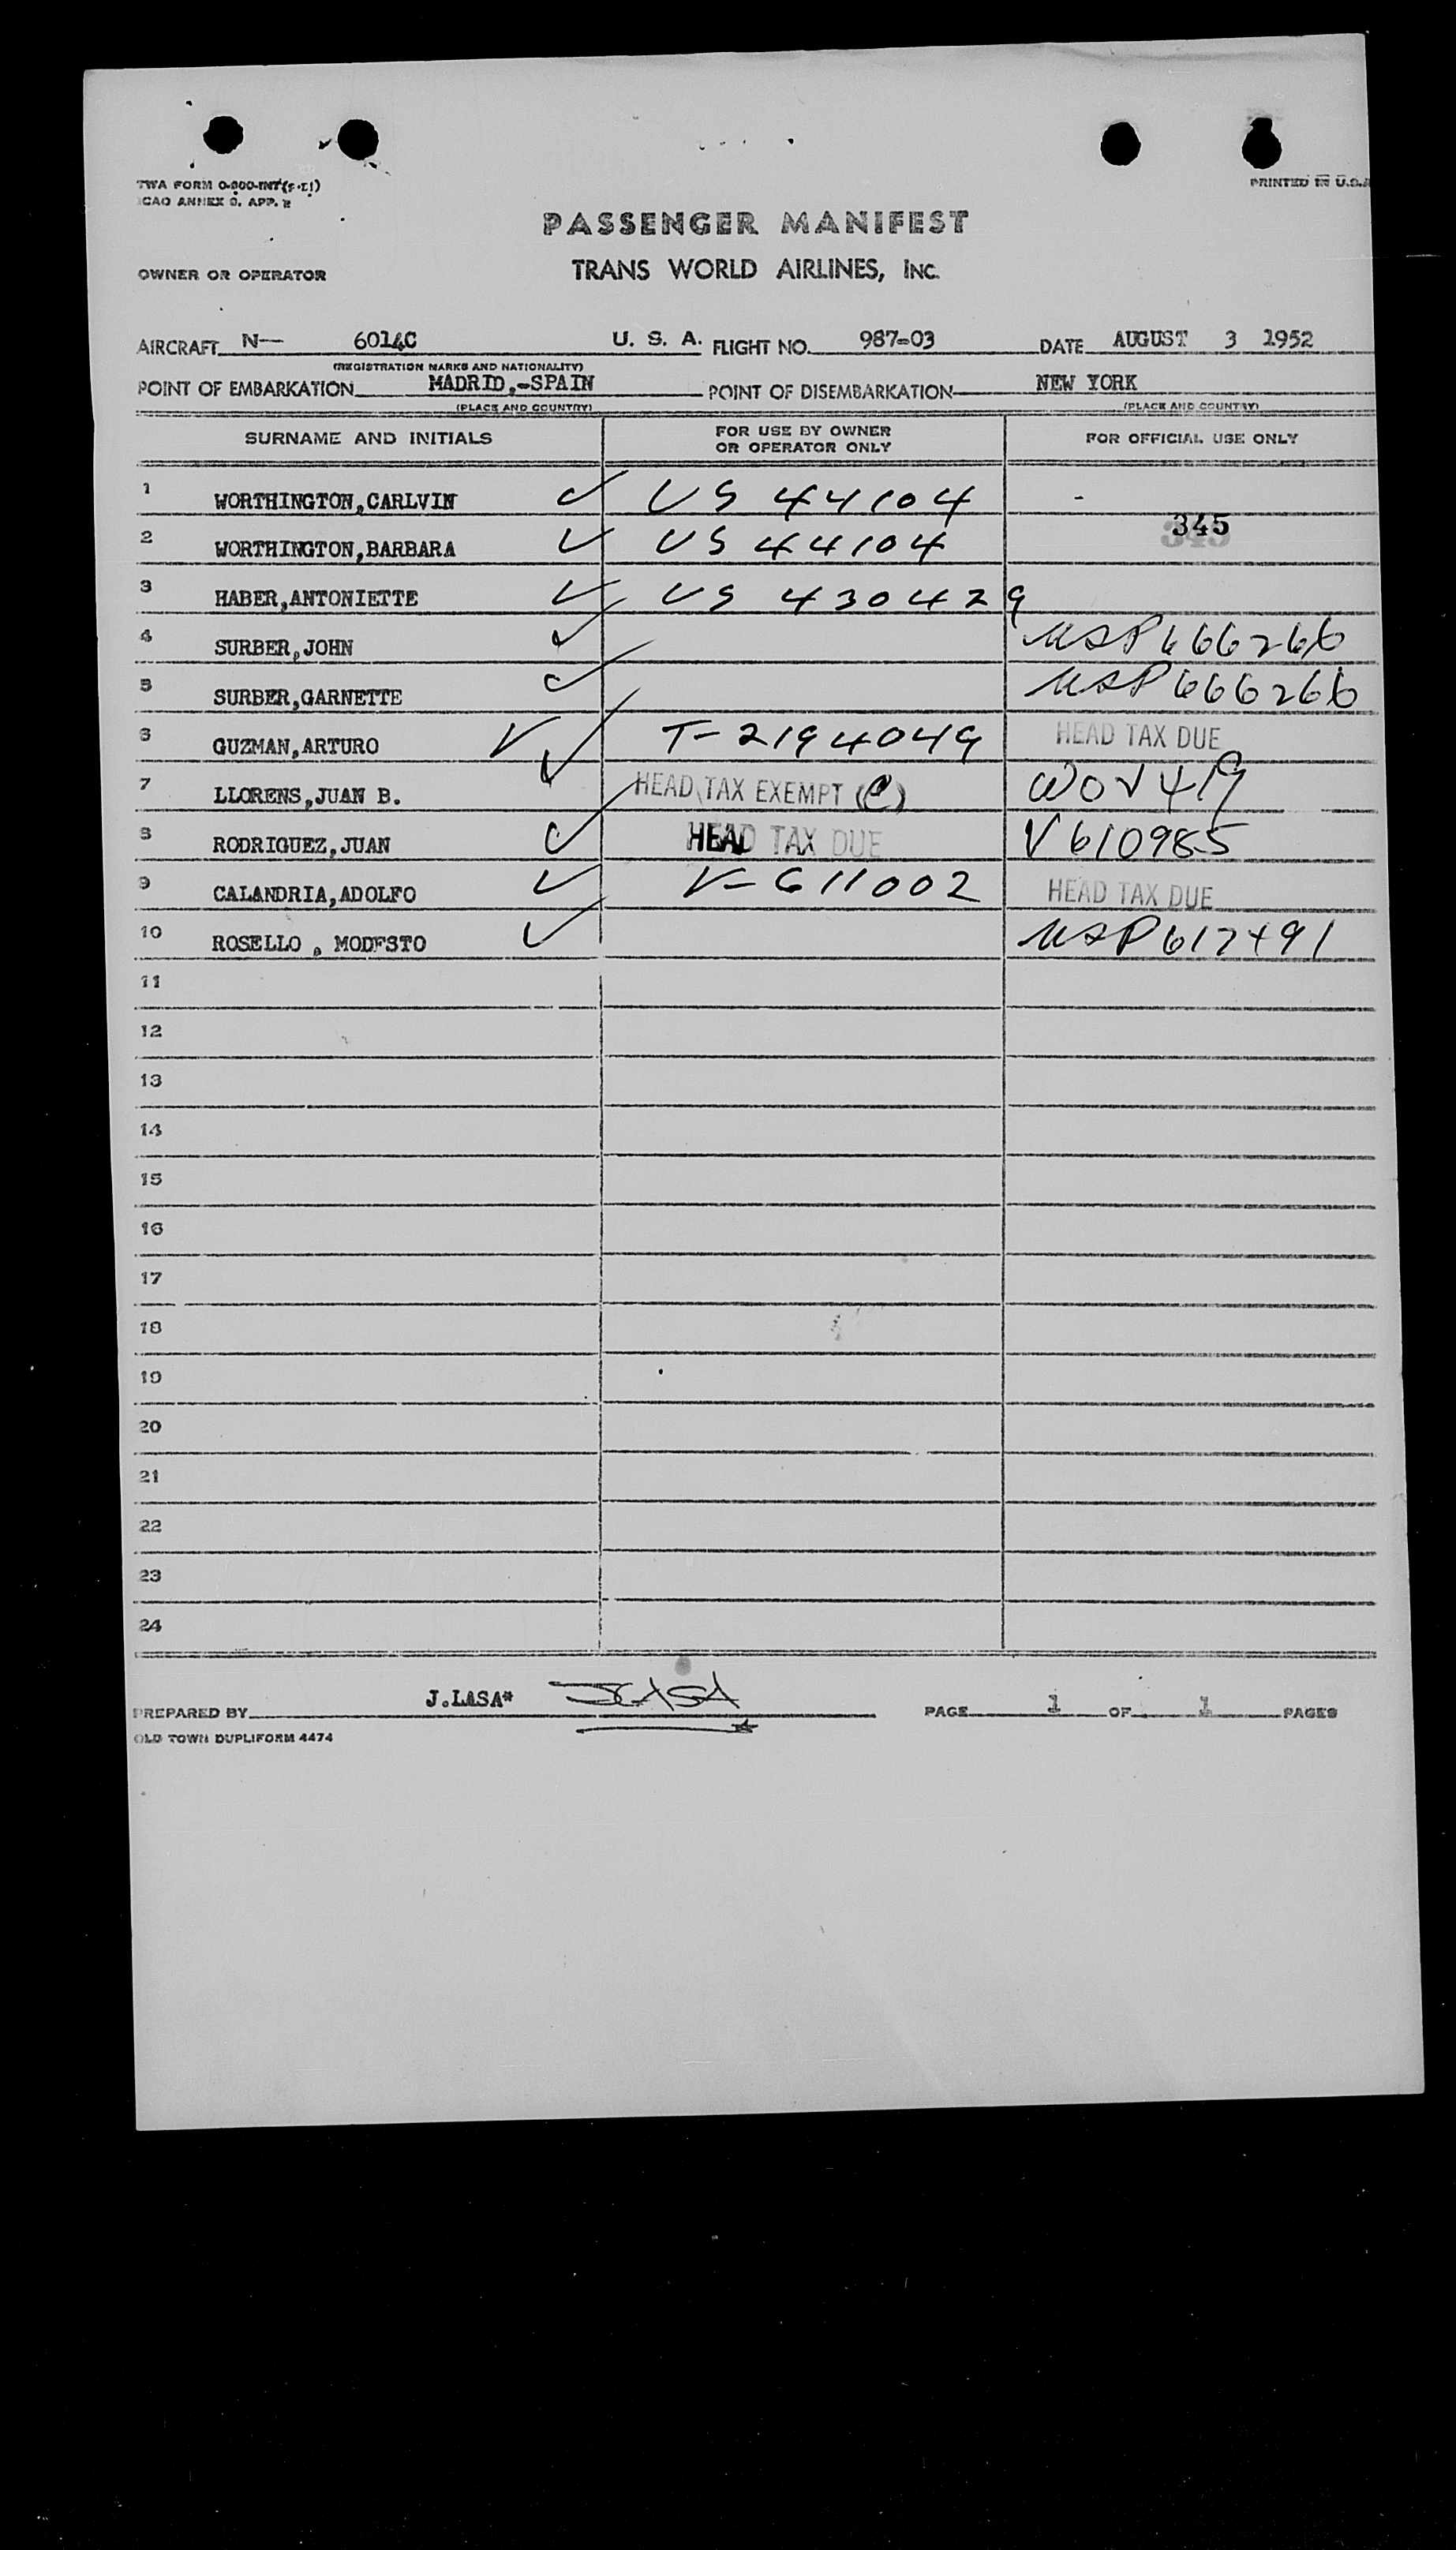 TWA FORM O-800-INT
ICAO ANNEX 9. APP.
PRINTED IN U.S.A
PASSENGER MANIFEST
OWNER OR OPERATOR TRANS WORLD AIRLINES, INC.
AIRCRAFT N— 6014C U. S. A. FLIGHT NO. 987-03 DATE AUGUST 3 1952
(REGISTRATION MARKS AND NATIONALITY)
POINT OF EMBARKATION MADRID,-SPAIN POINT OF DISEMBARKATION NEW YORK
(PLACE AND COUNTRY) (PLACE AND COUNTRY)
SURNAME AND INITIALS FOR USE BY OWNER OR OPERATOR ONLY FOR OFFICIAL USE ONLY
1 WORTHINGTON,CARLVIN ✓ US 44104 -
345
2 WORTHINGTON,BARBARA ✓ US 44104
3 HABER,ANTONIETTE ✓ US 430429
4 SURBER,JOHN ✓ USP 666266
5 SURBER,GARNETTE ✓ USP 666266
6 GUZMAN,ARTURO ✓ ✓ T-2194049 HEAD TAX DUE
7 LLORENS,JUAN B. HEAD TAX EXEMPT (C)
8 RODRIGUEZ,JUAN ✓ HEAD TAX DUE V 610985
9 CALANDRIA,ADOLFO ✓ V-611002 HEAD TAX DUE
10 ROSELLO , MODESTO ✓ USP 617491
11
12
13
14
15
16
17
18
19
20
21
22
23
24
PREPARED BY J.LASA* JLASA PAGE 1 OF 1 PAGES
OLD TOWN DUPLIFORM 4474